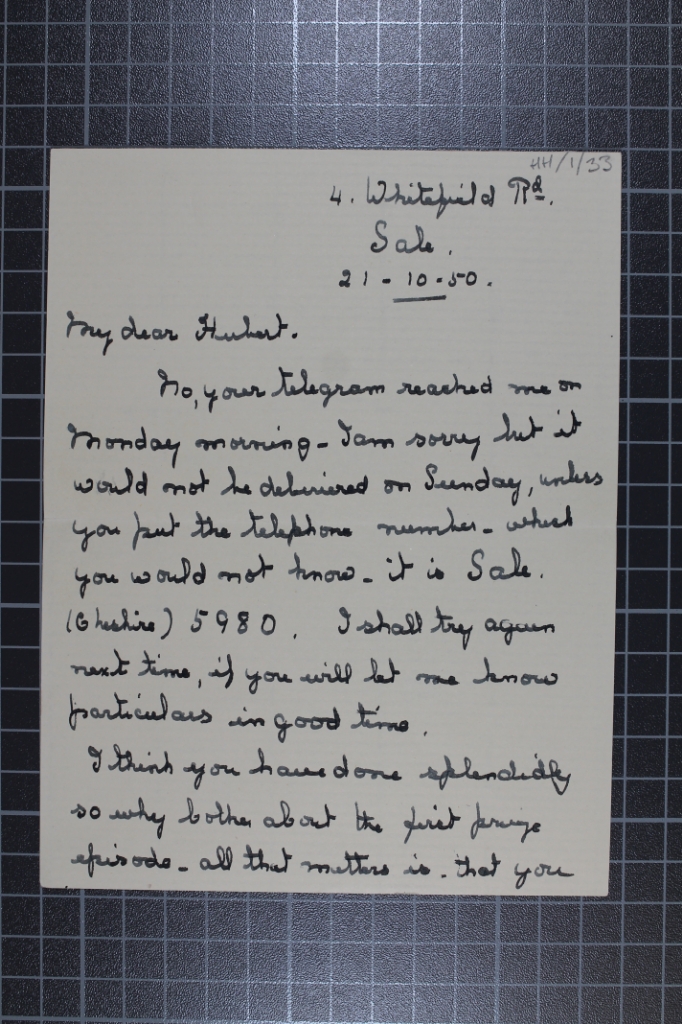 HH/1/33
4. Whitefield Rd.
Sale.
21-10-50.
My dear Hubert.
No, your telegram reached me on
Monday morning - I am sorry but it
would not be delivered on Sunday, unless
you put the telephone number - which
you would not know - it is Sale.
(Cheshire) 5980. I shall try again
next time, if you will let me know
particulars in good time.
I think you have done splendidly
so why bother about the first
episode - all that matters is - that you